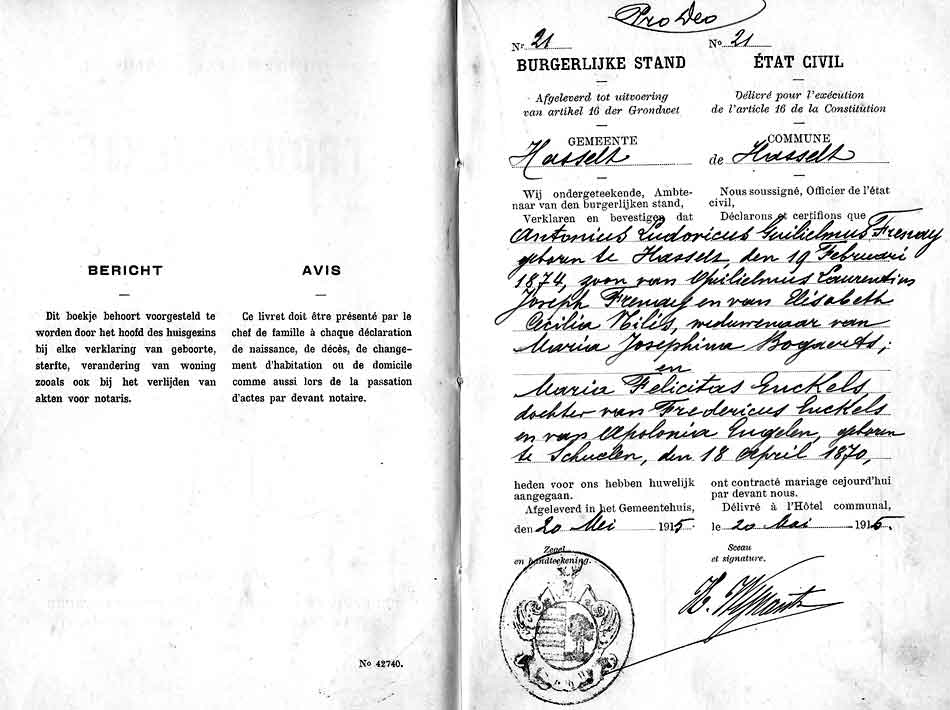 BERICHT
Dit boekje behoort voorgesteld te
worden door het hoofd des huisgezins
bij elke verklaring van geboorte,
sterfte, verandering van woning
zooals ook bij het verlijden van
akten voor notaris.
AVIS
Ce livret doit être présenté par le
chef de famille à chaque déclaration
de naissance, de décès, de change-
ment d'habitation ou de domicile
comme aussi lors de la passation
d'actes par devant notaire.
No 42740.
Pro Deo
Nr 21
BURGERLIJKE STAND
Afgeleverd tot uitvoering
van artikel 16 der Grondwet
GEMEENTE
Hasselt
Wij ondergeteekende, Ambte-
naar van den burgerlijken stand,
Verklaren en bevestigen dat
No 21
ÉTAT CIVIL
Délivré pour l'exécution
de l'article 16 de la Constitution
COMMUNE
de Hasselt
Nous soussigné, Officier de l'état
civil,
Déclarons et certifions que
Antonius Ludovicus Guilielmus Fresnay
geboren te Hasselt, den 19 Februari
1874, zoon van Guilielmus Laurentius
Joseph Fremay en van Elisabeth
Cecilia Nilis, weduwenaar van
Maria Josephina Bogaerts;
en
Maria Felicitas Enckels,
dochter van Fredericus Enckels
en van Apolonia Engelen, geboren
te Schuelen, den 18 April 1870,
heden voor ons hebben huwelijk
aangegaan.
Afgeleverd in het Gemeentehuis,
den 20 Mei 1915
Zegel
en handteekening.
ont contracté mariage cejourd'hui
par devant nous.
Délivré à l'Hôtel communal,
le 20 Mai 1915.
Sceau
et signature.